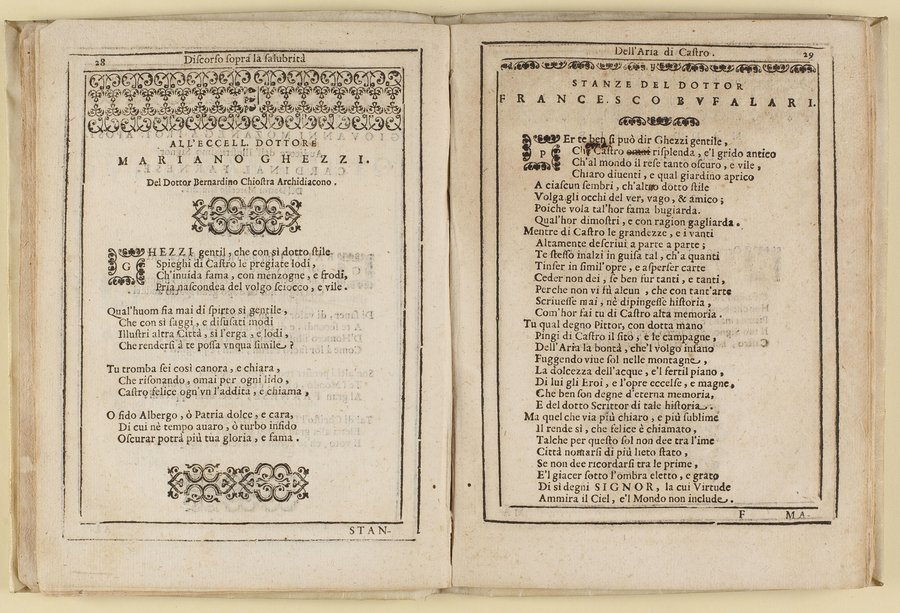 28
Discorso sopra la salubrità
ALL'ECCELL. DOTTORE
MARIANO GHEZZI.
Del Dottor Bernardino Chiostra Archidiacono.
GHEZZI gentil, che con sì dotto stile
Spieghi di Castro le pregiate lodi,
Ch'inuida fama, con menzogne, e frodi,
Pria nascondea del volgo sciocco, e vile.
Qual'huom fia mai di spirto sì gentile,
Che con sì saggi, e disusati modi
Illustri altra Città, si l'erga, e lodi,
Che rendersi à te possa vnqua simile?
Tu tromba sei così canora, e chiara,
Che risonando, omai per ogni lido,
Castro felice ogn'vn l'addita, e chiama,
O fido Albergo, ò Patria dolce, e cara,
Di cui nè tempo auaro, ò turbo infido
Oscurar potrà più tua gloria, e fama.
STAN-
Dell'Aria di Castro.
29
STANZE DEL DOTTOR
FRANCESCO BVFALARI.
PEr te ben si può dir Ghezzi gentile,
Che Castro omai risplenda, e'l grido antico
Ch'al mondo il rese tanto oscuro, e vile,
Chiaro diuenti, e qual giardino aprico
A ciascun sembri, ch'altro dotto stile
Volga gli occhi del ver, vago, & amico;
Poiche vola tal'hor fama bugiarda.
Qual'hor dimostri, e con ragion gagliarda.
Mentre di Castro le grandezze, e i vanti
Altamente descriui a parte a parte;
Te stesso inalzi in guisa tal, ch'a quanti
Tinser in simil'opre, e asperser carte
Ceder non dei, se ben fur tanti, e tanti,
Perche non vi fù alcun, che con tant'arte
Scriuesse mai, nè dipingesse historia,
Com'hor fai tu di Castro alta memoria.
Tu qual degno Pittor, con dotta mano
Pingi di Castro il sito, e le campagne,
Dell'Aria la bontà, che'l volgo insano
Fuggendo viue sol nelle montagne,
La dolcezza dell'acque, e'l fertil piano,
Di lui gli Eroi, e l'opre eccelse, e magne,
Che ben son degne d'eterna memoria,
E del dotto Scrittor di tale historia.
Ma quel che via più chiaro, e più sublime
Il rende si, che felice è chiamato,
Talche per questo sol non dee tra l'ime
Città nomarsi di più lieto stato,
Se non dee ricordarsi tra le prime,
E'l giacer sotto l'ombra eletto, e grato
Di si degni SIGNOR, la cui Virtude
Ammira il Ciel, e'l Mondo non include.
F MA-